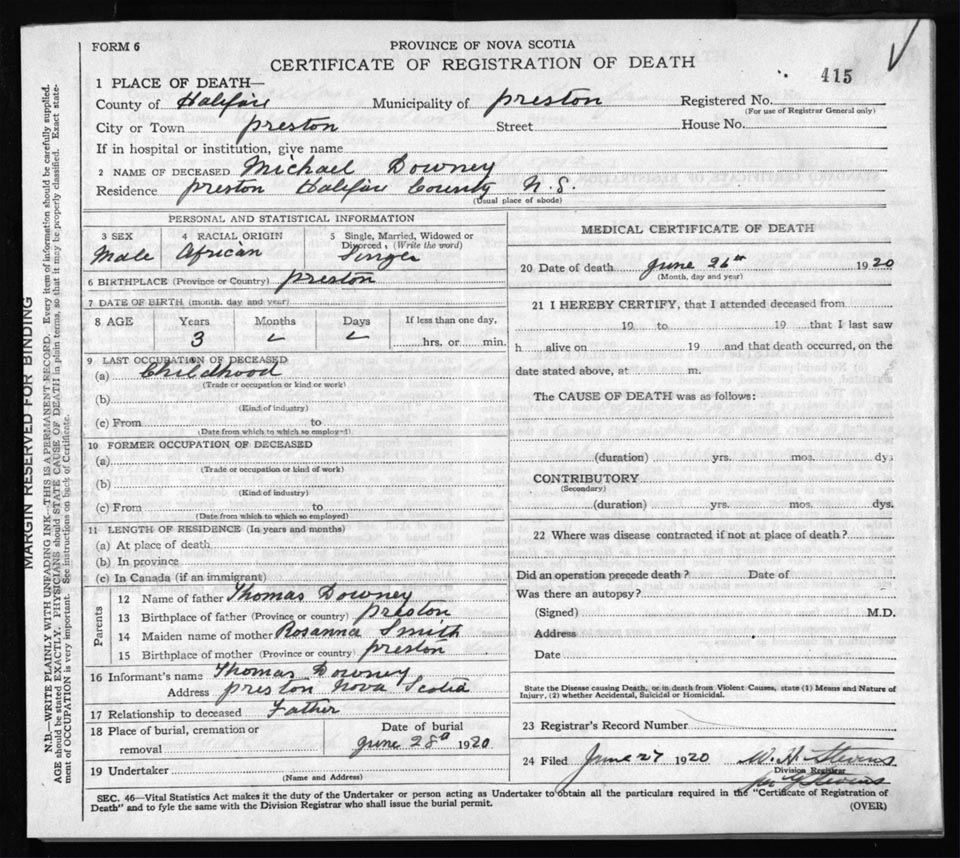 FORM 6
PROVINCE OF NOVA SCOTIA
CERTIFICATE OF REGISTRATION OF DEATH
415
1 PLACE OF DEATH—
County of Halifax Municipality of Preston Registered No.
(For use of Registrar General only)
City or Town Preston Street House No.
If in hospital or institution, give name
2 NAME OF DECEASED Michael Downey
Residence Preston Halifax County N.S.
(Usual place of abode)
PERSONAL AND STATISTICAL INFORMATION
3 SEX 4 RACIAL ORIGIN 5 Single, Married, Widowed or Divorced, (Write the word)
Male African Singel
6 BIRTHPLACE (Province or Country) Preston
7 DATE OF BIRTH (month, day and year)
8 AGE Years Months Days If less than one day,
3 hrs. or min.
9 LAST OCCUPATION OF DECEASED
(a) Childhood
(Trade or occupation or kind or work)
(b)
(Kind of industry)
(c) From to
(Date from which to which so employed)
10 FORMER OCCUPATION OF DECEASED
(a)
(Trade or occupation or kind of work)
(b)
(Kind of industry)
(c) From to
(Date from which to which so employed)
11 LENGTH OF RESIDENCE (In years and months)
(a) At place of death
(b) In province
(c) In Canada (if an immigrant)
Parents
12 Name of father Thomas Downey
13 Birthplace of father (Province or country) Preston
14 Maiden name of mother Rosanna Smith
15 Birthplace of mother (Province or country) Preston
16 Informant's name Thomas Downey
Address Preston Nova Scotia
17 Relationship to deceased Father
18 Place of burial, cremation or removal Date of burial
June 28th 1920
19 Undertaker
(Name and Address)
MEDICAL CERTIFICATE OF DEATH
20 Date of death June 26th 1920
(Month, day and year)
21 I HEREBY CERTIFY, that I attended deceased from
19 to 19 that I last saw
h alive on 19 and that death occurred, on the
date stated above, at m.
The CAUSE OF DEATH was as follows:
(duration) yrs. mos. dys
CONTRIBUTORY
(Secondary)
(duration) yrs. mos. dys.
22 Where was disease contracted if not at place of death?
Did an operation precede death? Date of
Was there an autopsy?
(Signed) M.D.
Address
Date
State the Disease causing Death, or in death from Violent Causes, state (1) Means and Nature of
Injury, (2) whether Accidental, Suicidal or Homicidal.
23 Registrar's Record Number
24 Filed June 27 1920 W. H. Stevens
Division Registrar
Stevens
SEC. 46—Vital Statistics Act makes it the duty of the Undertaker or person acting as Undertaker to obtain all the particulars required in the "Certificate of Registration of
Death" and to fyle the same with the Division Registrar who shall issue the burial permit.
(OVER)
MARGIN RESERVED FOR BINDING
N.D.—WRITE PLAINLY WITH UNFADING INK—THIS IS A PERMANENT RECORD. Every item of information should be carefully supplied.
AGE should be stated EXACTLY. PHYSICIANS should STATE CAUSE OF DEATH in plain terms, so that it may be properly classified. Exact state-
ment of OCCUPATION is very important. See instructions on back of Certificate.